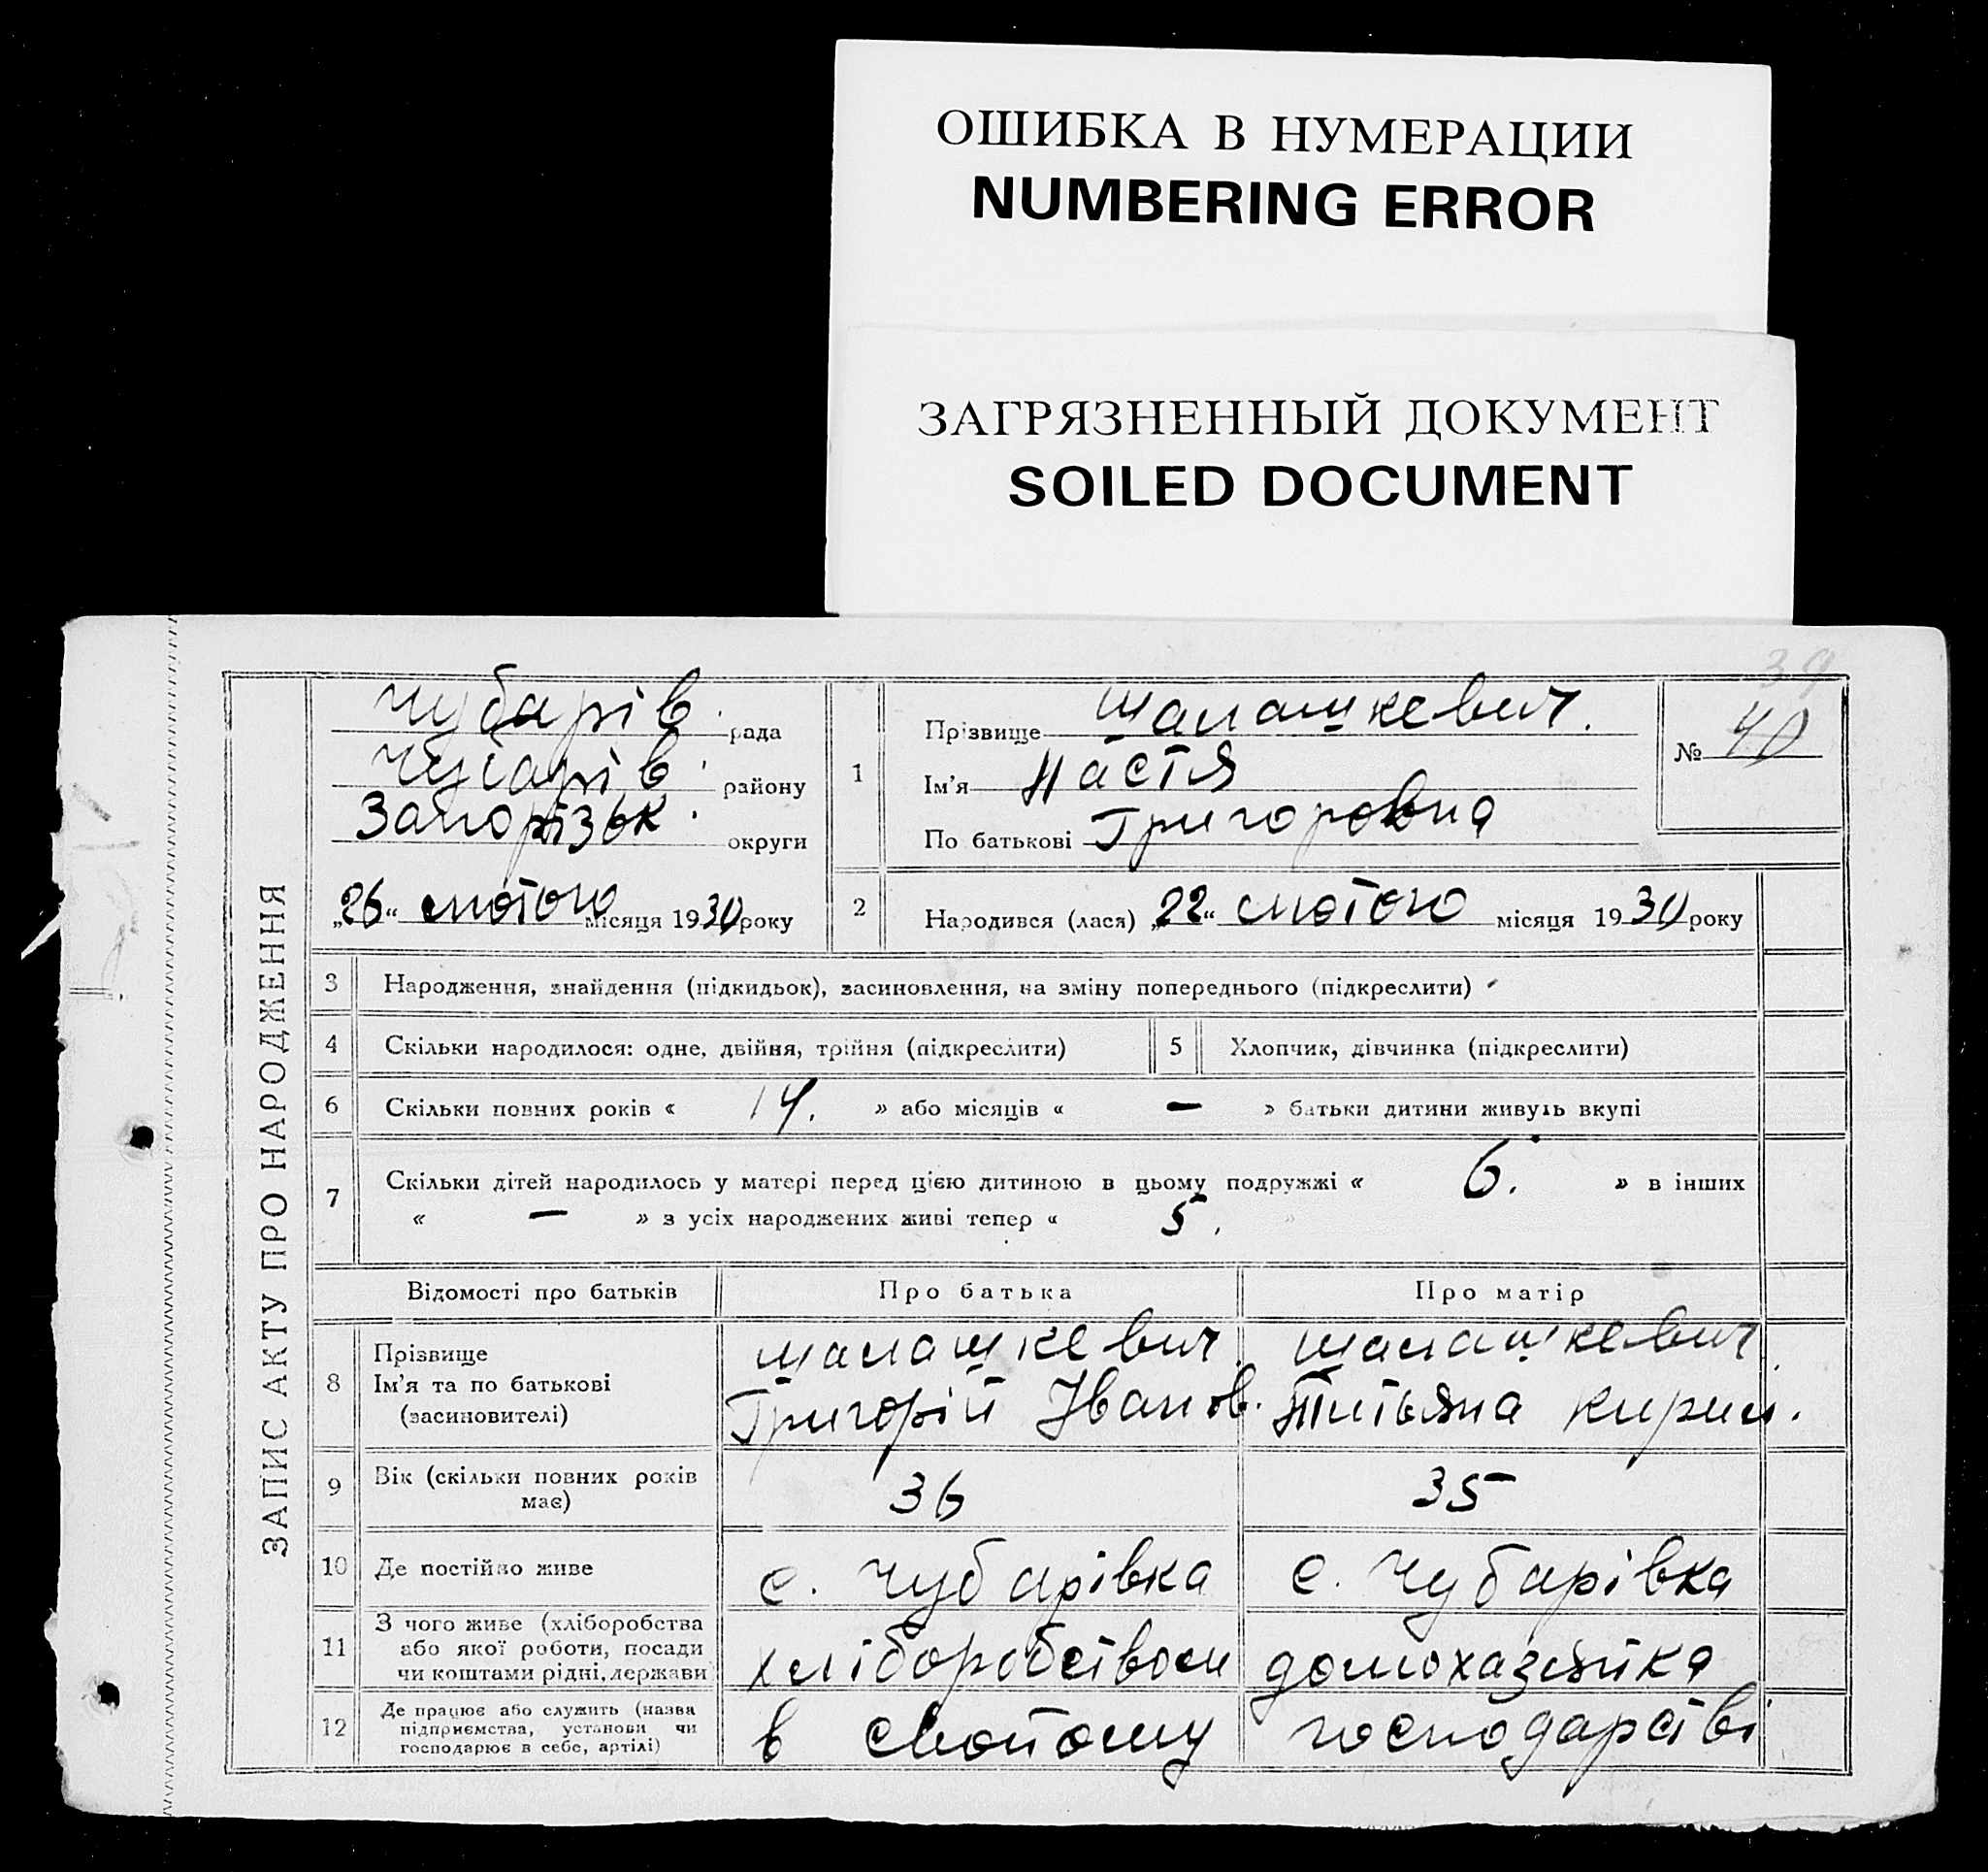 ОШИБКА В НУМЕРАЦИИ
NUMBERING ERROR
ЗАГРЯЗНЕННЫЙ ДОКУМЕНТ
SOILED DOCUMENT
39
ЗАПИС АКТУ ПРО НАРОДЖЕННЯ
Чубарів. рада
Чубарів. району
Запорізьк. округи
„26“ лютого місяця 1930 року
1
Прізвище Шалашкевич.
Ім'я Настя
По батькові Григоровна
№ 40
2 Народився (лася) „22“ лютого місяця 1930 року
3 Народження, знайдення (підкидьок), засиновлення, на зміну попереднього (підкреслити)
4 Скільки народилося: одне, двійня, трійня (підкреслити) 5 Хлопчик, дівчинка (підкреслити)
6 Скільки повних років « 14. » або місяців « — » батьки дитини живуть вкупі
7 Скільки дітей народилось у матері перед цією дитиною в цьому подружжі « 6. » в інших
« — » з усіх народжених живі тепер « 5. »
Відомості про батьків Про батька Про матір
8 Прізвище
Ім'я та по батькові
(засиновителі)
Шалашкевич.
Григорій Іванов.
Шалашкевич.
Титьяна Кирил.
9 Вік (скільки повних років
має) 36 35
10 Де постійно живе с. Чубарівка с. Чубарівка
11 З чого живе (хліборобства
або якої роботи, посади
чи коштами рідні, держави)
хліборобством домохазяйка
12 Де працює або служить (назва
підприємства, установи чи
господарює в себе, артілі)
в свойому господарстві